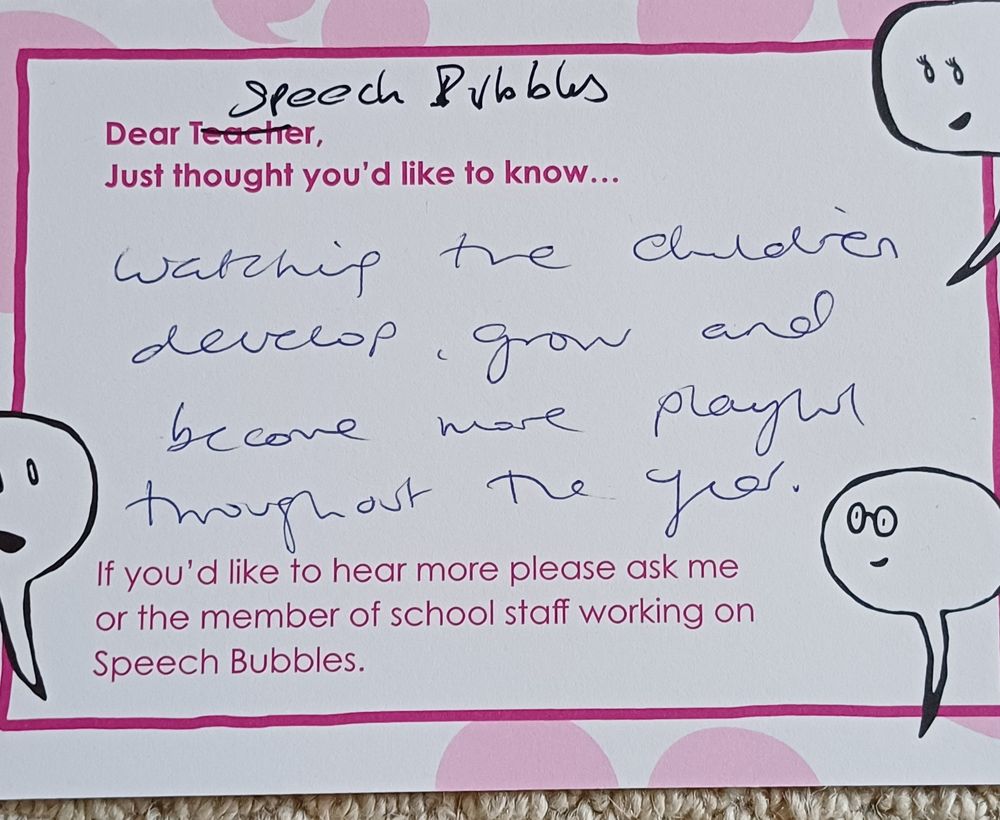 Speech Bubbles
Dear Teacher,
Just thought you'd like to know...
Watching the children
develop, grow and
become more playful
throughout the year.
If you'd like to hear more please ask me
or the member of school staff working on
Speech Bubbles.